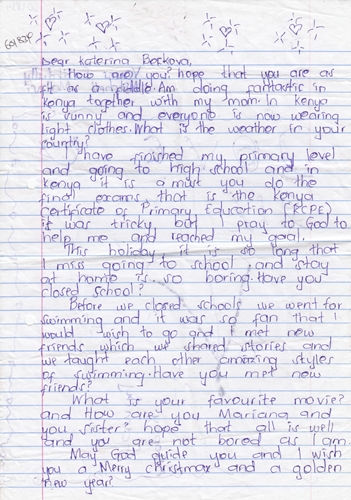 Dear Katerina Bockova,
How are you? hope that you are as
fit as a fiddle. Am doing fantastic in
Kenya together with my mom. In Kenya
is sunny and everyone is now wearing
light clothes. What is the weather in your
country?
I have finished my primary level
and going to high school and in
Kenya it is a must you do the
final excams that is the Kenya
certificate of Primary Education (KCPE)
it was tricky but I pray to God to
help me and reached my goal.
This holiday it is so long that
I miss going to school and stay
at home is so boring. Have you
closed school?
Before we closed schools we went for
swimming and it was so fan that I
would wish to go and I met new
friends which we shared stories and
we taught each other amazing styles
of swimming. Have you met new
friends?
What is your favourite movie?
and How are you Mariana and
you sister? hope that all is well
and you are not bored as I am.
May God guide you and I wish
you a Merry christmas and a golden
new year?